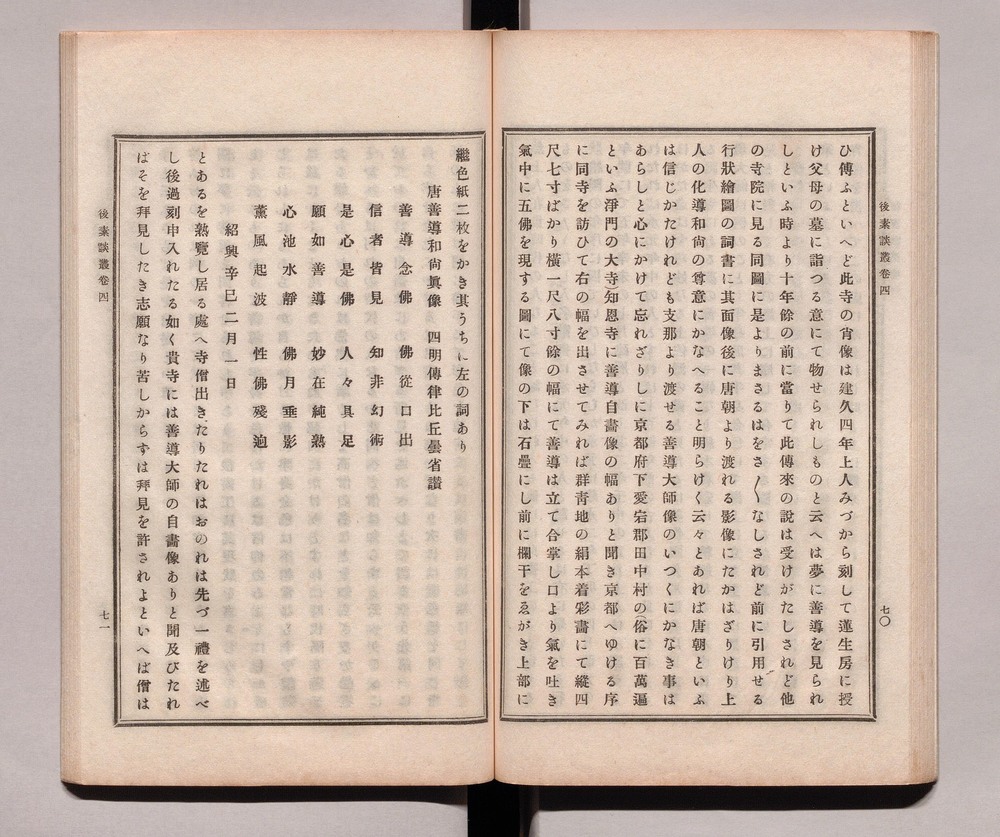 後素談叢卷四
七〇
ひ傳ふといへど此寺の肖像は建久四年上人みづから刻して蓮生房に授
け父母の墓に詣つる意にて物せられしものと云へは夢に善導を見られ
しといふ時より十年餘の前に當りて此傳來の說は受けがたしされど他
の寺院に見る同圖に是よりまさるはをさ〱なしされど前に引用せる
行狀繪圖の詞書に其面像後に唐朝より渡れる影像にたかはざりけり上
人の化導和尙の尊意にかなへること明らけく云々とあれば唐朝といふ
は信じかたけれども支那より渡せる善導大師像のいつくにかなき事は
あらしと心にかけて忘れざりしに京都府下愛宕郡田中村の俗に百萬遍
といふ淨門の大寺)知恩寺に善導自畫像の幅ありと聞き京都へゆける序
に同寺を訪ひて右の幅を出させてみれば群靑地の絹本着彩畫にて縱四
尺七寸ばかり橫一尺八寸餘の幅にて善導は立て合掌し口より氣を吐き
氣中に五佛を現する圖にて像の下は石疊にし前に欄干をゑがき上部に
繼色紙二枚をかき其うちに左の詞あり
唐善導和尙眞像　四明傳律比丘曇省讚
善導念佛　佛從口出
信者皆見　知非幻術
是心是佛　人々具足
願如善導　妙在純熟
心池水靜　佛月垂影
薰風起波　性佛殘逈
紹興辛巳二月一日
とあるを熟覽し居る處へ寺僧出きたりたれはおのれは先づ一禮を述べ
し後過刻申入れたる如く貴寺には善導大師の自畫像ありと聞及びたれ
ばそを拜見したき志願なり苦しからすは拜見を許されよといへば僧は
後素談叢卷四
七一